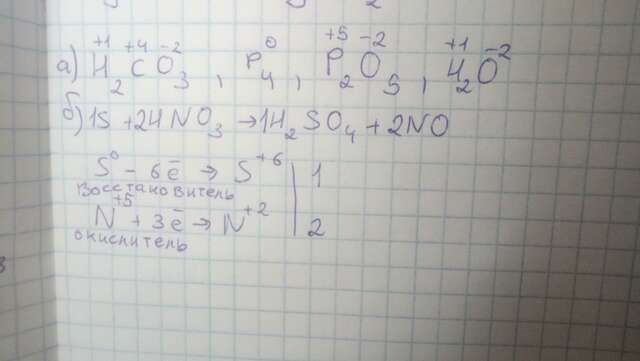 а) H₂⁺¹C⁺⁴O₃⁻², P₄⁰, P₂⁺⁵O₅⁻², H₂⁺¹O⁻²
б) 1S + 2HNO₃ → 1H₂SO₄ + 2NO
S⁰ - 6ē → S⁺⁶ | 1
восстановитель
N⁺⁵ + 3ē → N⁺² | 2
окислитель